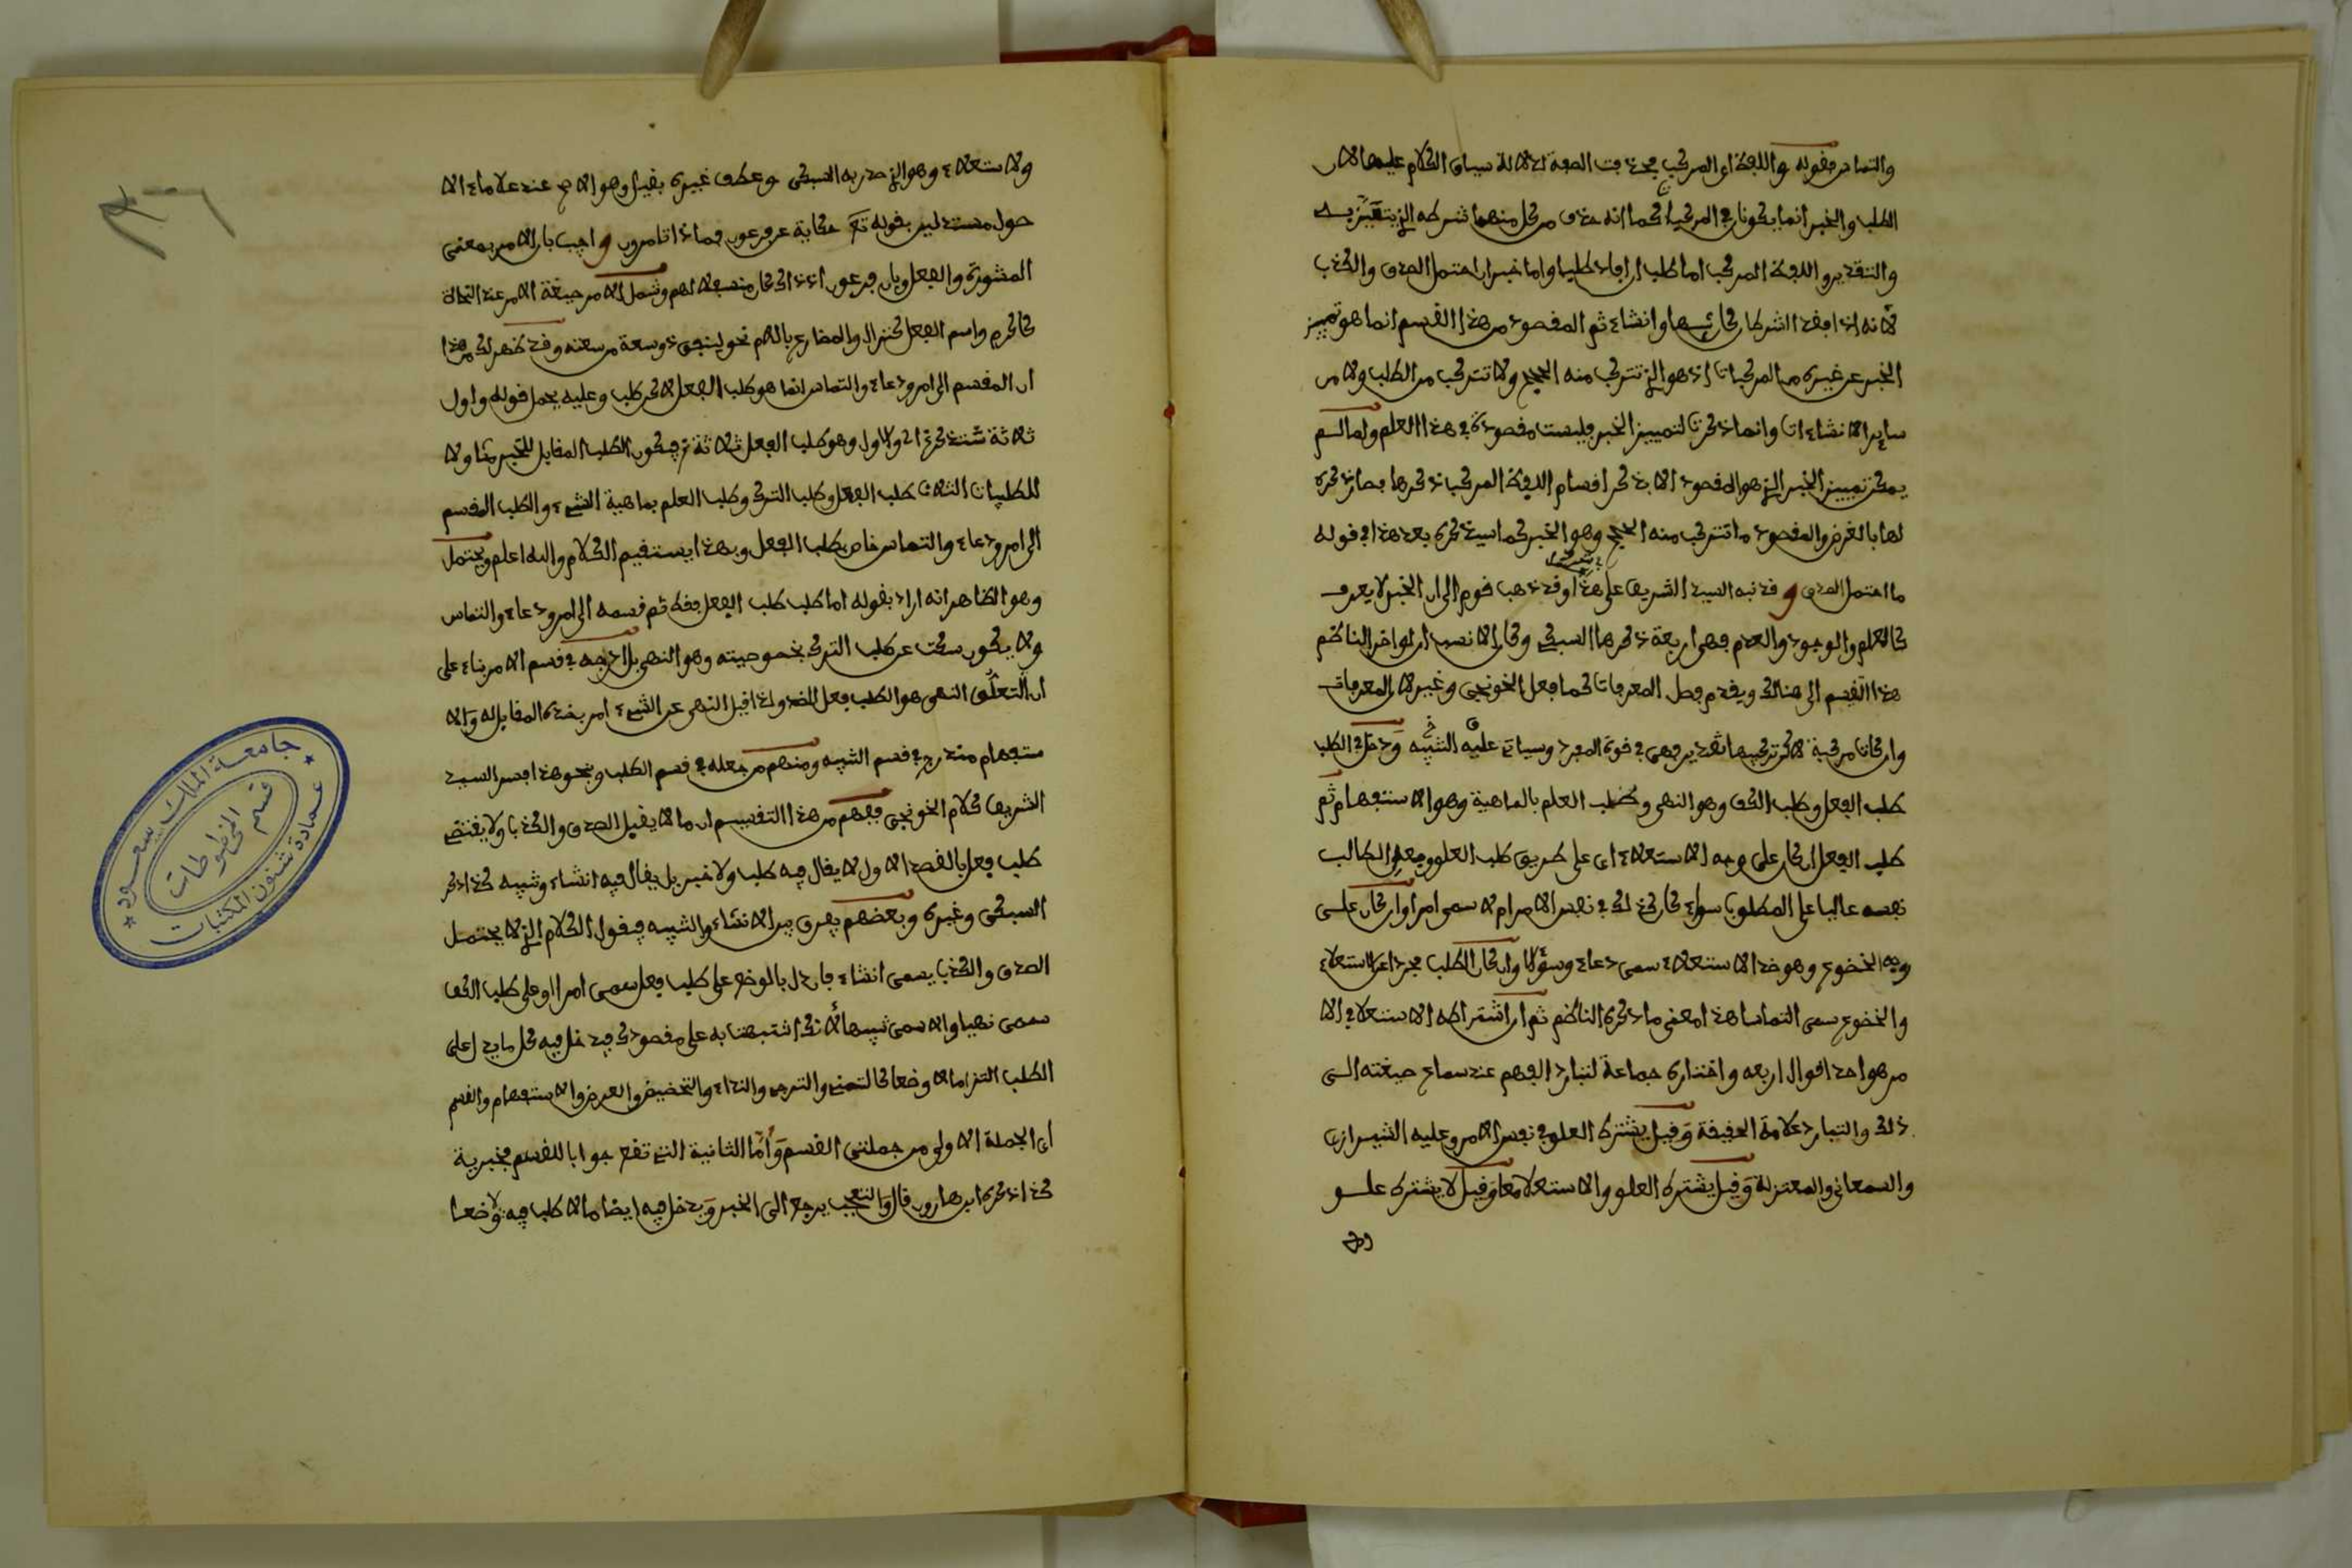 والتماس فقوله واللفظ اي المركب بحذف الصفة لدلالة سياق الكلام عليها لان
الطلب والخبر انما يكونان في المركبات كما انه حذف من كل منهما شرطه الذي يتقيد به
والتقدير واللفظ المركب اما طلب ان افاد طلبا واما خبر ان احتمل الصدق والكذب
لانه اذا فقد الشرطان كان تنبيها وانشاء ثم المقصود من هذا القسم انما هو تمييز
الخبر عن غيره من المركبات اذ هو الذي تتركب منه الحجج ولا تتركب من الطلب ولا من
ساير الانشاءات وانما ذكرت لتمييز الخبر فليست مقصودة في هذا العلم ولما لم
يمكن تمييز الخبر الذي هو المقصود الا بذكر اقسام اللفظ المركب ذكرها فصار ذكره
لها بالعرض والمقصود ما تتركب منه الحجج وهو الخبر كما سيذكره بعد هذا في قوله
ما احتمل الصدق وقد نبه السيد الشريف على هذا وقد ذهب قوم الى ان الخبر لا يعرف
كالعلم والوجود والعدم فهي اربعة ذكرها السبكي وكان الانسب ان لو اخر الناظم
هذا التقسيم الى هنالك ويقدم فصل المعرفات كما فعل الخونجي وغيره لان المعرفات
وان كانت مركبة لاكن تركيبها تقديري فهي في قوة المفرد وسياتي عليه التنبيه ودخل في الطلب
طلب الفعل وطلب الكف وهو النهي وطلب العلم بالماهية وهو الاستفهام ثم
طلب الفعل ان كان على وجه الاستعلاء اي على طريق طلب العلو وجعل الطالب
نفسه عاليا على المطلوب سواء كان كذلك في نفس الامر ام لا سمي امرا وان كان على
وجه الخضوع وهو ضد الاستعلاء سمي دعاء وسؤالا وان كان الطلب مجردا عن الاستعلاء
والخضوع سمي التماسا هذا معنى ما ذكره الناظم ثم ان اشتراط الاستعلاء في الا
مر هو احد اقوال اربعه واختاره جماعة لتبادر الفهم عند سماع صيغته الى
ذلك والتبادر علامة الحقيقة وقيل يشترط العلو في نفس الامر وعليه الشيرازي
والسمعاني والمعتزلة وقيل يشترط العلو والاستعلاء معا وقيل لا يشترط علو
ولا
ولا استعلاء وهو الذي صدر به السبكي وعطف غيره بقيل وهو الاصح عند علماء الا
صول مستدلين بقوله تعالى حكاية عن فرعون فماذا تامرون واجيب بان الامر بمعنى
المشورة والفعل وبان فرعون اذ ذاك كان منسفلا لهم وشمل الامر صيغة الامر عند النحاة
كاكرم واسم الفعل كنزال والمضارع باللام نحو لينفق ذو سعة من سعته وقد ظهر لك من هذا
ان المقسم الى امر ودعاء والتماس انما هو طلب الفعل لا كل طلب وعليه يحمل قوله واول
ثلاثة ستذكر اي والاول وهو طلب الفعل ثلاثة فيكون الطلب المقابل للخبر متناولا
للطلبات الثلاث طلب الفعل وطلب الترك وطلب العلم بماهية الشيء والطلب المقسم
الى امر ودعاء والتماس خاص بطلب الفعل وبهذا يستقيم الكلام والله اعلم ويحتمل
وهو الظاهر انه اراد بقوله اما طلب طلب الفعل فقط ثم قسمه الى امر ودعاء والتماس
ولا يكون سكت عن طلب الترك بخصوصيته وهو النهي بل ادرجه في قسم الامر بناء على
ان التعلق النهي هو الطلب فعل الضد ولذا قيل النهي عن الشيء امر بضده المقابل له والا
ستفهام مندرج في قسم التنبيه ومنهم من جعله في قسم الطلب وبنحو هذا فسر السيد
الشريف كلام الخونجي ففهم من هذا التقسيم ان ما لا يقبل الصدق والكذب ولا يقتضي
طلب فعل بالقصد الاول لا يقال فيه طلب ولا خبر بل يقال فيه انشاء وتنبيه كذا ذكر
السبكي وغيره وبعضهم يفرق بين الانشاء والتنبيه فيقول الكلام الذي لا يحتمل
الصدق والكذب يسمى انشاء فان دل بالوضع على طلب فعل سمي امرا او على طلب الكف
سمي نهيا والا سمي تنبيها لانك اشتبهت به على مقصودك فيدخل فيه كل ما يدل على
الطلب التزاما لا وضعا كالتمني والترجي والنداء والتحضيض والعرض والاستفهام والقسم
اي الجملة الاولى من جملتي القسم واما الثانية التي تقع جوابا للقسم فخبرية
كذا ذكره ابن هارون قال والتعجب يرجع الى الخبر ويدخل فيه ايضا ما لا طلب فيه لا وضعا
جامعة الملك سعود
قسم المخطوطات
عمادة شئون المكتبات